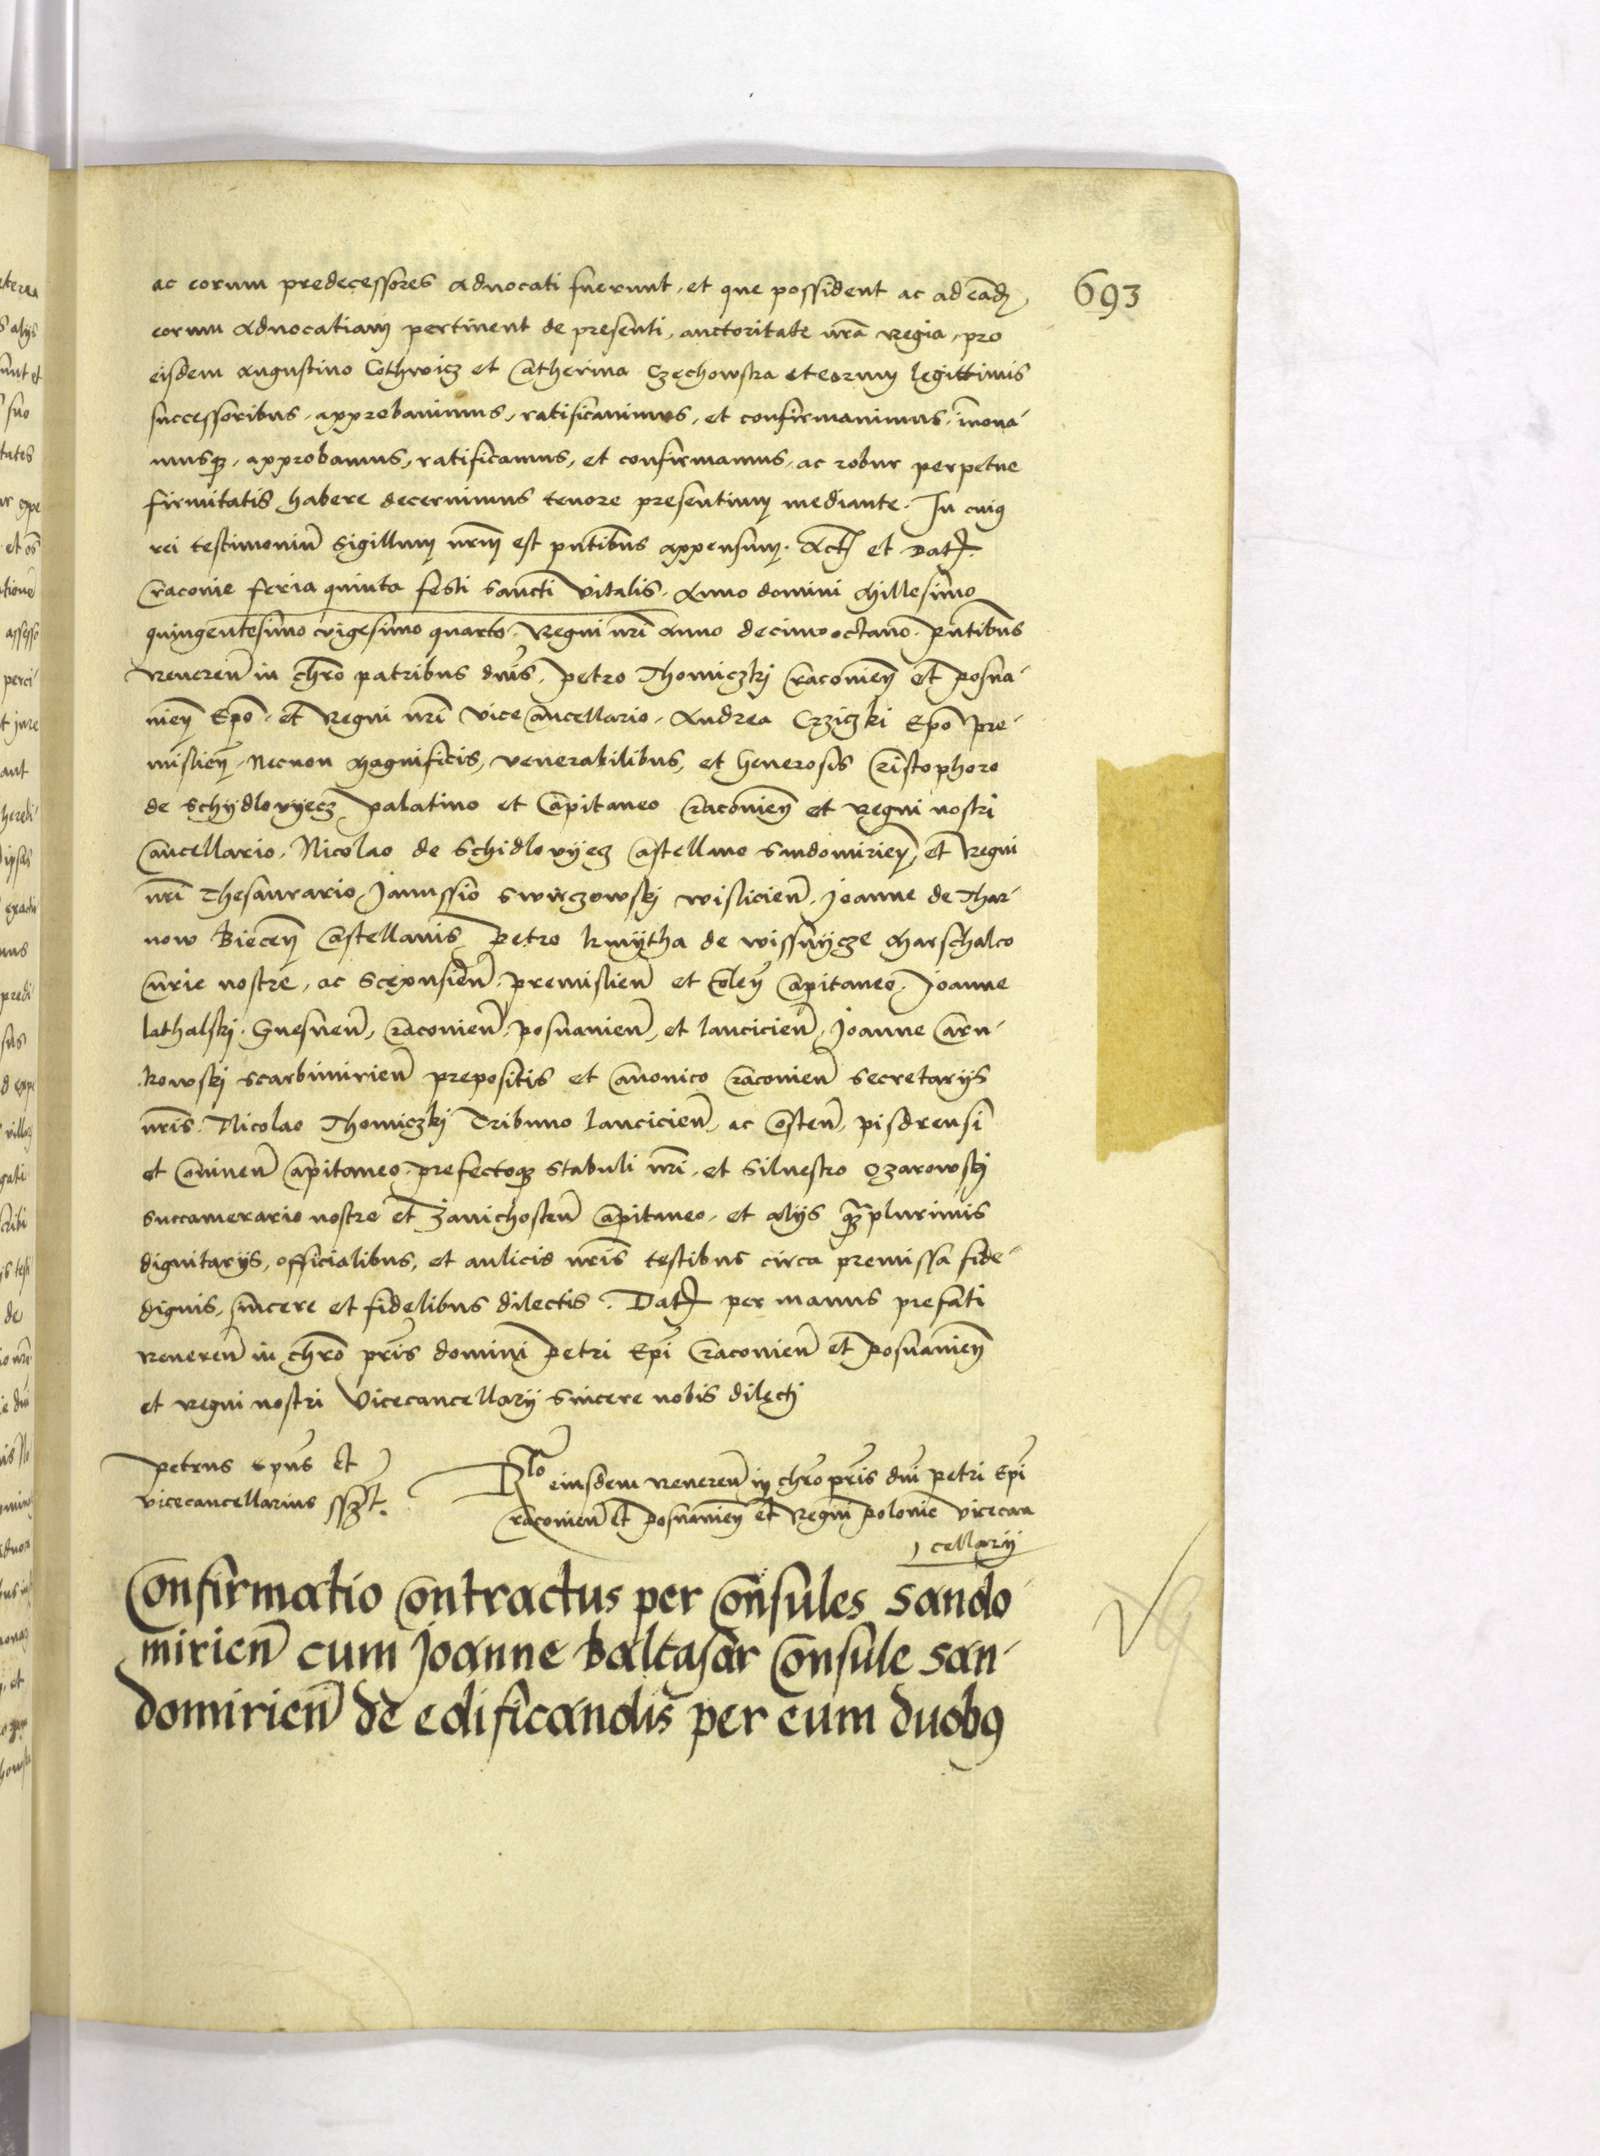 693
ac eorum predecessores advocati fuerunt, et que possident ac ad eād
eorum advocatiam pertinent de presenti, auctoritate nrā Regia, pro
eisdem Augustino Cothwicz et Catherina Czechowska et eorum legittimis
successoribus, approbavimus, ratificavimus, et confirmavimus, innova-
musq, approbamus, ratificamus, et confirmamus, ac robur perpetue
firmitatis habere decernimus tenore presentium mediante. In cuius
rei testimoniū Sigillum nrm est pntibus appensum. Act et Dat
Cracovie feria quinta festi sancti Vitalis. Anno domini Millesimo
quingentesimo vigesimo quarto. Regni nri Anno decimooctavo. Pntibus
Reveren in chro patribus dnis, Petro Thomiczkj Cracovien et Posna-
nien Epo. et Regni nri vice Cancellario. Andrea Crziczki Epo Pre-
mislien, Necnon Magnificis, venerabilibus, et Generosis Cristophoro
de Schydlovyecz Palatino et Capitaneo Cracovien et Regni nostri
Cancellario. Nicolao de Schidlovyecz Castellano Sandomirien, et Regni
nri Thesaurario, Janussio Swirczowskj wislicien. Joanne de Thar-
now Biecen Castellanis, Petro kmytha de wissnycze Marschalco
Curie nostre, ac Scepusien, Premislien et Colen Capitaneo. Joanne
lathalskj. Gnesnen, Cracovien, Posnanien, et lancicien, Joanne Carn-
kowskj scarbimirien prepositis et Canonico Cracovien Secretarys
nris. Nicolao Thomiczkj Tribuno lancicien, ac Costen, pisdrensi
et Coninen Capitaneo, prefectoq Stabuli nri. et Silvestro Ozarowskj
Succamerario nostro et Zavichosten Capitaneo, et alys qplurimis
dignitarys, officialibus, et aulicis nris testibus circa premissa fide-
dignis, sincere et fidelibus dilectis. Dat per manus prefati
Reveren in chro pris domini Petri Epi Cracovien et Posnanien
et Regni nostri Vicecancellary sincere nobis dilecti
Petrus Epus et
vicecancellarius sszt.
Rlo eiusdem Reveren in chro pris dni Petri Epi
Cracovien et Posnanien et Regni Polonie vicecan
cellary
Confirmatio Contractus per Consules Sando-
mirien cum Joanne Baltasar Consule San-
domirien de edificandis per eum duobus